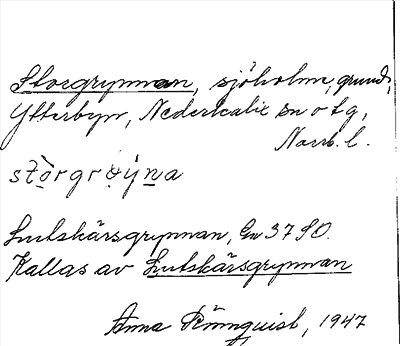 Storgrynnan, sjöholme, grund,
Ytterbyn, Nederkalix sn o tg,
Norrb. l.
stòrgrøýna
Lutskärsgrynnan, Gn 37 SO.
Kallas av Lutskärsgrynnan
Anna Rönnquist, 1947